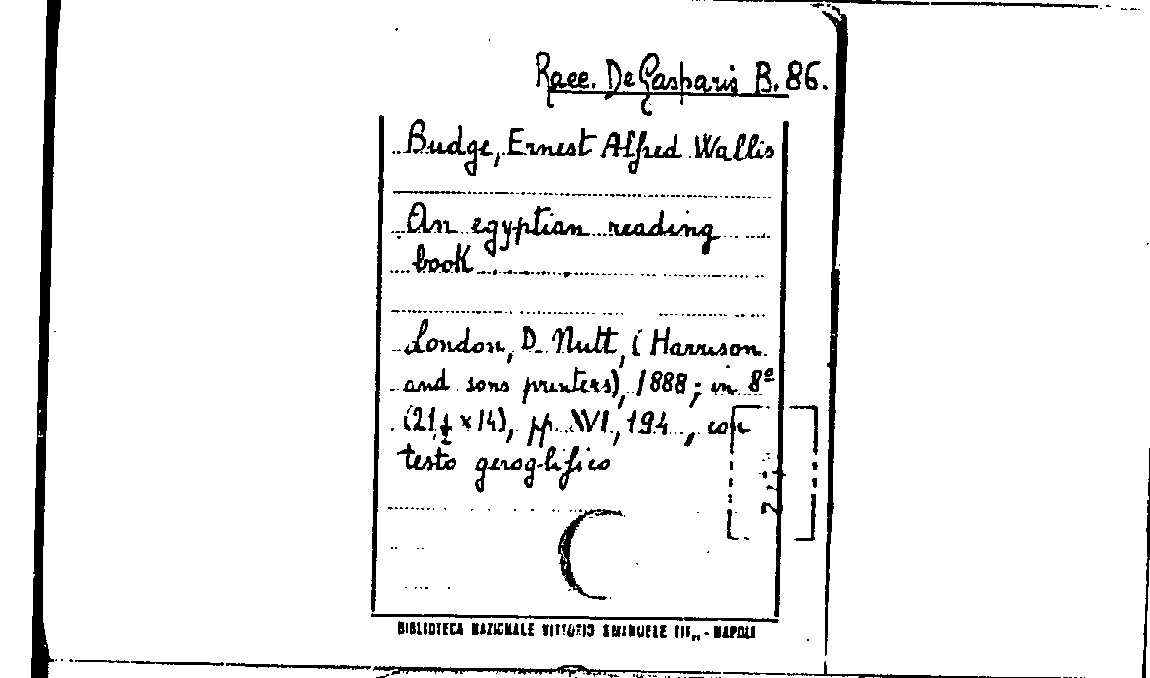 Racc. De Gasparis B. 86.
Budge, Ernest Alfred Wallis
An egyptian reading
book
London, D. Nutt, (Harrison
and sons printers), 1888; in 8º
(21½ x 14), pp. XVI, 194, con
testo geroglifico
BIBLIOTECA NAZIONALE VITTORIO EMANUELE III,, - NAPOLI